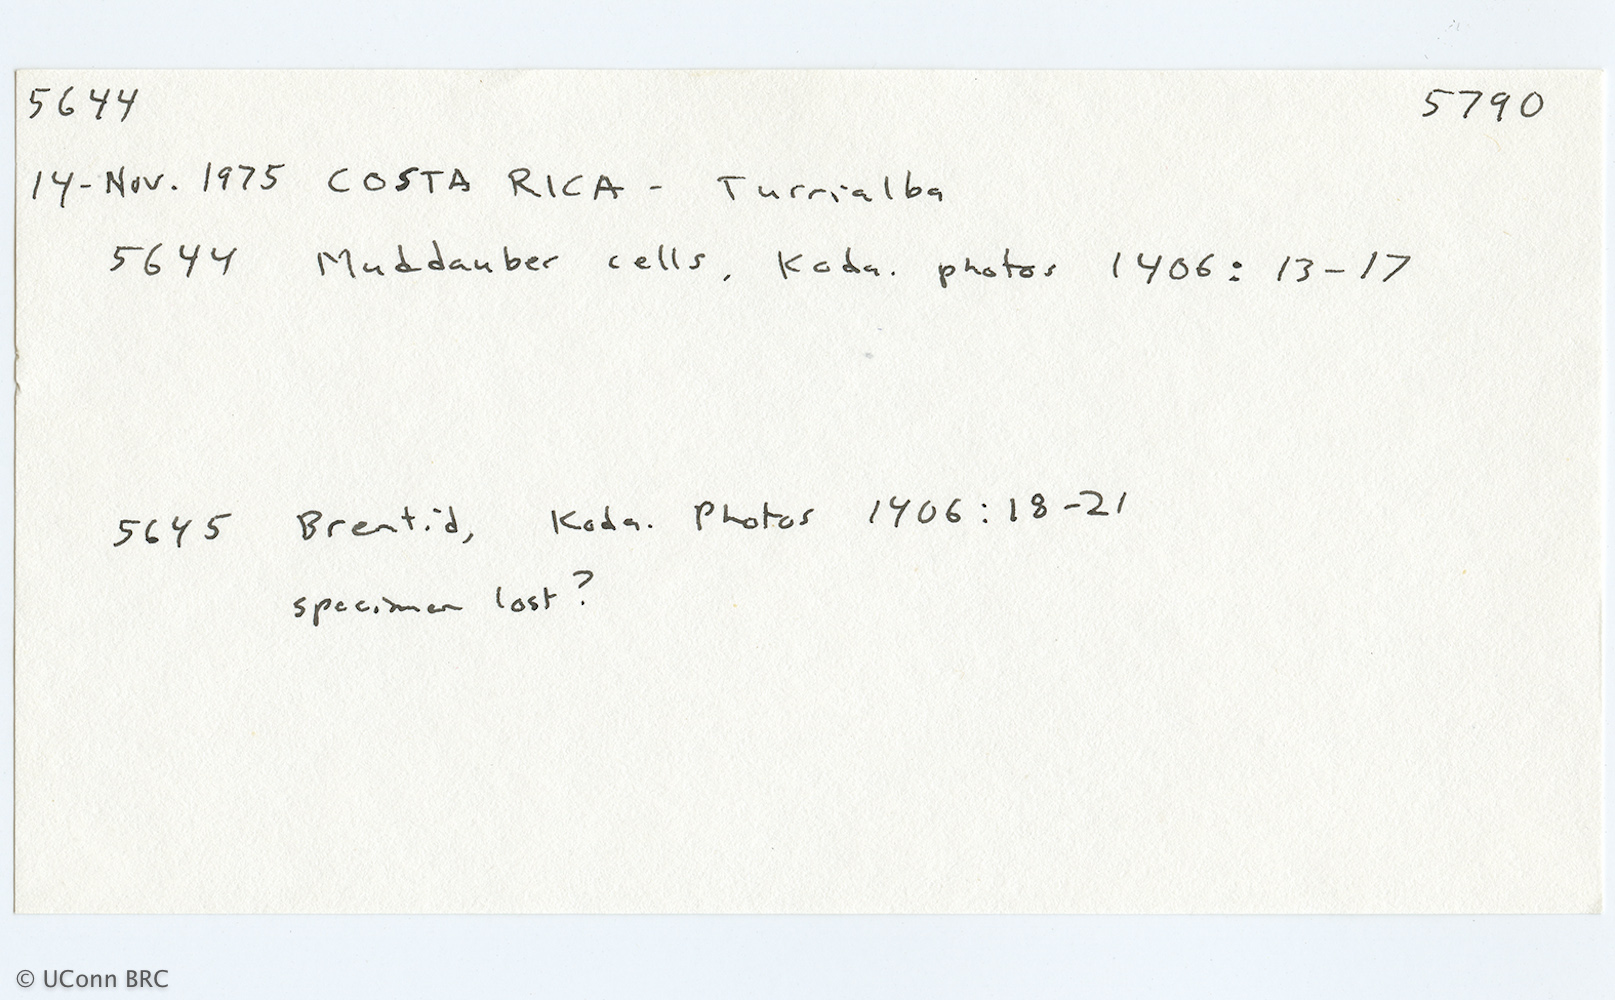 5644 5790
14-Nov. 1975 COSTA RICA - Turrialba
5644 Muddauber cells, Koda. photos 1406: 13-17
5645 Brentid, Koda. Photos 1406:18-21
specimen lost?
© UConn BRC